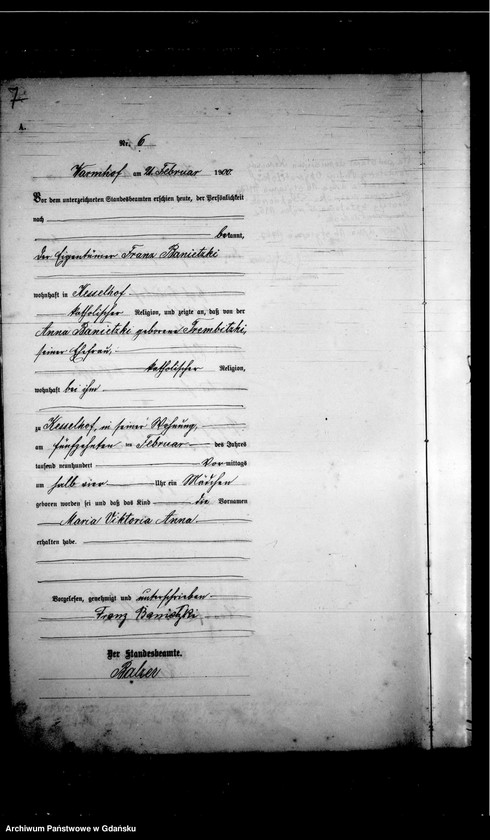 7.
A.
Nr. 6
Warmhof am 21. Februar 1900.
Vor dem unterzeichneten Standesbeamten erschien heute, der Persönlichkeit
nach
bekannt,
der Eigentümer Franz Banietzki
wohnhaft in Kesselhof
katholischer Religion, und zeigte an, daß von der
Anna Banietzki geborene Trembitzki,
seiner Ehefrau,
katholischer Religion,
wohnhaft bei ihm
zu Kesselhof, in seiner Wohnung,
am fünfzehnten im Februar des Jahres
tausend neunhundert Vormittags
um halb vier Uhr ein Mädchen
geboren worden sei und daß das Kind die Vornamen
Maria Viktoria Anna
erhalten habe.
Vorgelesen, genehmigt und unterschrieben
Franz Banietzki
Der Standesbeamte.
Balzer
Archiwum Państwowe w Gdańsku